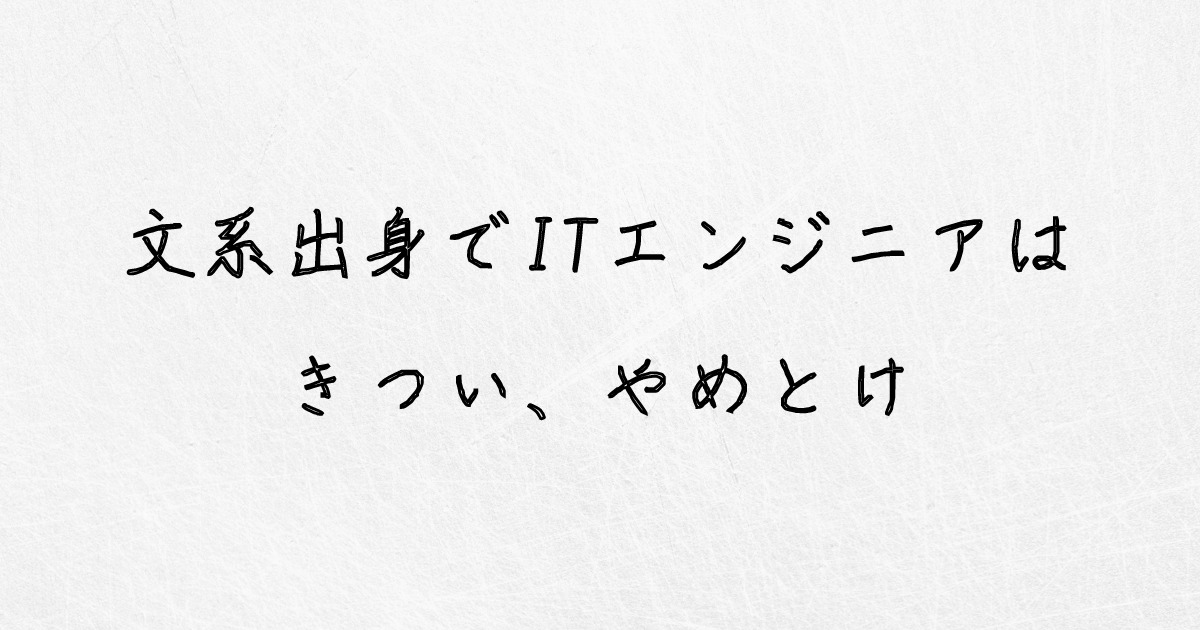 文系出身でITエンジニアは
きつい、やめとけ